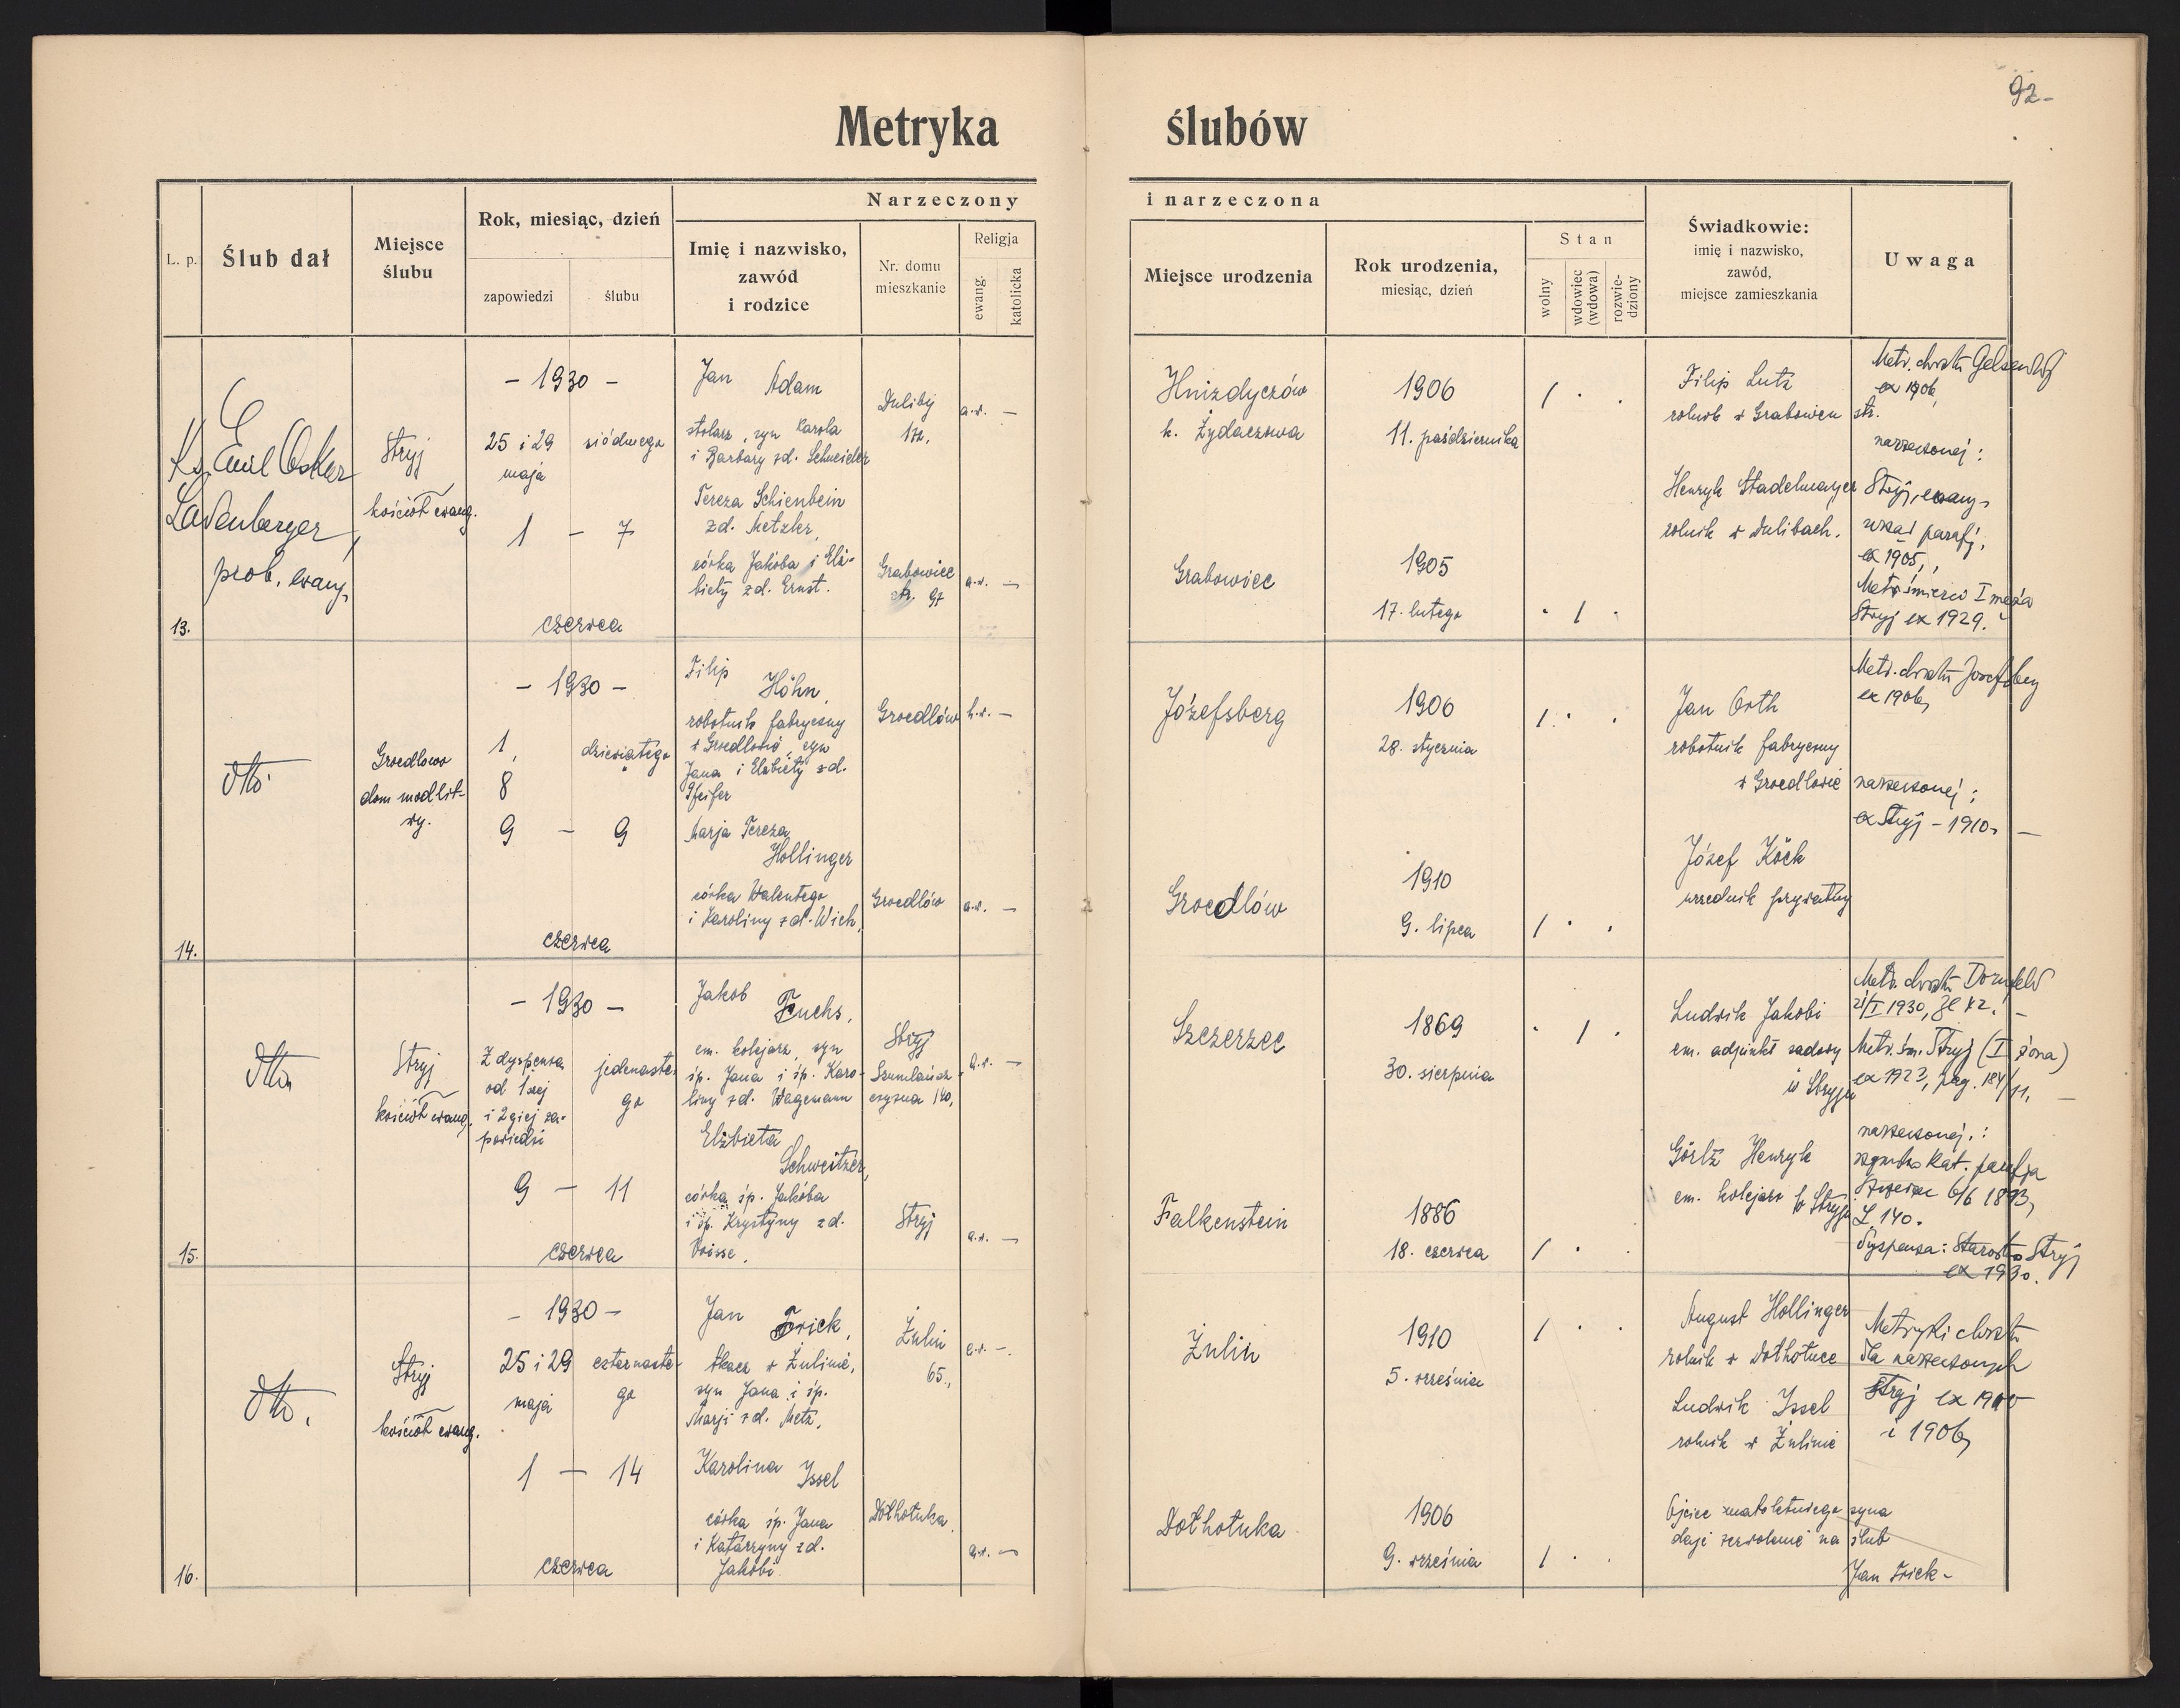 92-
Metryka ślubów
Narzeczony i narzeczona
L. p.
Ślub dał
Miejsce
ślubu
Rok, miesiąc, dzień
zapowiedzi
ślubu
Imię i nazwisko,
zawód
i rodzice
Nr. domu
mieszkanie
Religja
ewang.
katolicka
Miejsce urodzenia
Rok urodzenia,
miesiąc, dzień
Stan
wolny
wdowiec
(wdowa)
rozwie-
dziony
Świadkowie:
imię i nazwisko,
zawód,
miejsce zamieszkania
Uwaga
13.
Ks. Emil Oskar
Ladenberger,
prob. ewang.
Stryj
kościół ewang.
- 1930 -
25 i 29
maja
siódmego
1 - 7
czerwca
Jan Adam
stolarz, syn Karola
i Barbary zd. Schneider
Duliby
172.
a.w. -
Tereza Schienbein
zd. Metzler,
córka Jakóba i Elż-
biety zd. Ernst.
Grabowiec
str. 97
a.w. -
Hnizdyczów
k. Żydaczowa
1906
11. października
1 . .
Grabowiec
1905
17. lutego
. 1 .
Filip Lutz
rolnik w Grabowcu str.
Henryk Stadelmayer
rolnik w Dulibach.
Metr. chrztu Gelsendorf
ex 1906,
narzeczonej:
Stryj, ewang.
urząd parafj.
ex 1905,
Metr. śmierci I męża
Stryj ex 1929.
14.
dtto
Groedlowo
dom modlit-
wy.
- 1930 -
1,
8
dziewiątego
9 - 9
czerwca
Filip
Höhn,
robotnik fabryczny
w Groedlowie, syn
Jana i Elżbiety zd.
Pfeifer
Groedlów
h.w. -
Marja Tereza
Hollinger
córka Walentego
i Karoliny zd. Wich,
Groedlów
a.w. -
Józefsberg
1906
28. stycznia
1 . .
Groedlów
1910
9. lipca
1 . .
Jan Orth
robotnik fabryczny
w Groedlowie
Józef Köck
urzednik prywatny
Metr. chrztu Josefsberg
ex 1906,
narzeczonej:
ex Stryj - 1910. -
15.
dtto
Stryj
kościół ewang.
- 1930 -
Z dyspenzą
od 1szej
i 2giej za-
powiedzi
jedenaste-
go
9 - 11
czerwca
Jakób
Fuchs,
em. kolejarz, syn
śp. Jana i śp. Karo-
liny zd. Wagemann
Stryj
Szumlańsz-
czyzna 140,
a.w. -
Elżbieta
Schweitzer,
córka śp. Jakóba
i śp. Krystyny zd.
Stryj
a.w. -
Szczerzec
1869
30. sierpnia
. 1 .
Falkenstein
1886
18. czerwca
1 . .
Ludwik Jakobi
em. adjunkt sadowy
w Stryju
Görtz Henryk
em. kolejarz w Stryju
Metr. chrztu Dornfeld
Metr. śm. Stryj (I żona)
ex 1923, pag. 184/11, -
narzeczonej:
rzymsko kat. parafja
Szczerzec 6/6 1893,
L. 140.
Dyspenza: Starostwo Stryj
ex 1930.
16.
dtto.
Stryj
kościół ewang.
- 1930 -
25 i 29
maja
czternaste-
go
1 - 14
czerwca
Jan Frick,
tkacz w Żulinie,
syn Jana i śp.
Marji zd. Metz,
Żulin
65.,
a.w. -.
Karolina Issel
córka śp. Jana
i Katarzyny zd.
Jakóbi.
Dołhołuka,
a.w. -
Żulin
1910
5. września
1 . .
Dołhołuka
1906
9. września
1 . .
August Hollinger
rolnik w Dołhołuce
Ludwik Issel
rolnik w Żulinie
Metryki chrztu
dla narzeczonych
Stryj ex 1910
i 1906,
Ojciec małoletniego syna
daje zezwolenie na ślub
Jan Frick -